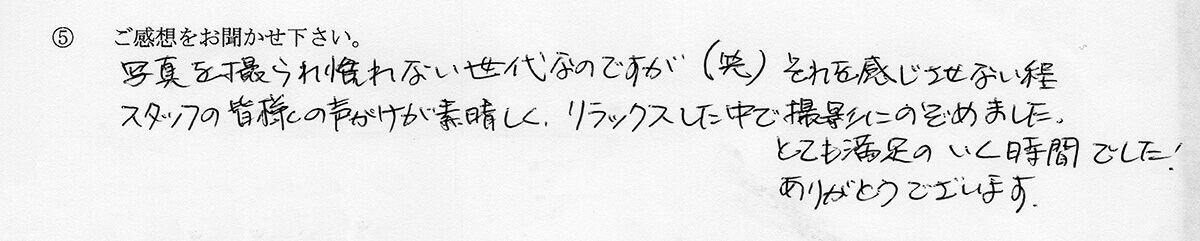 ⑤ ご感想をお聞かせ下さい。
写真を撮られ慣れない世代なのですが(笑)それを感じさせない程
スタッフの皆様の声がけが素晴しく、リラックスした中で撮影にのぞめました。
とても満足のいく時間でした!
ありがとうございます。